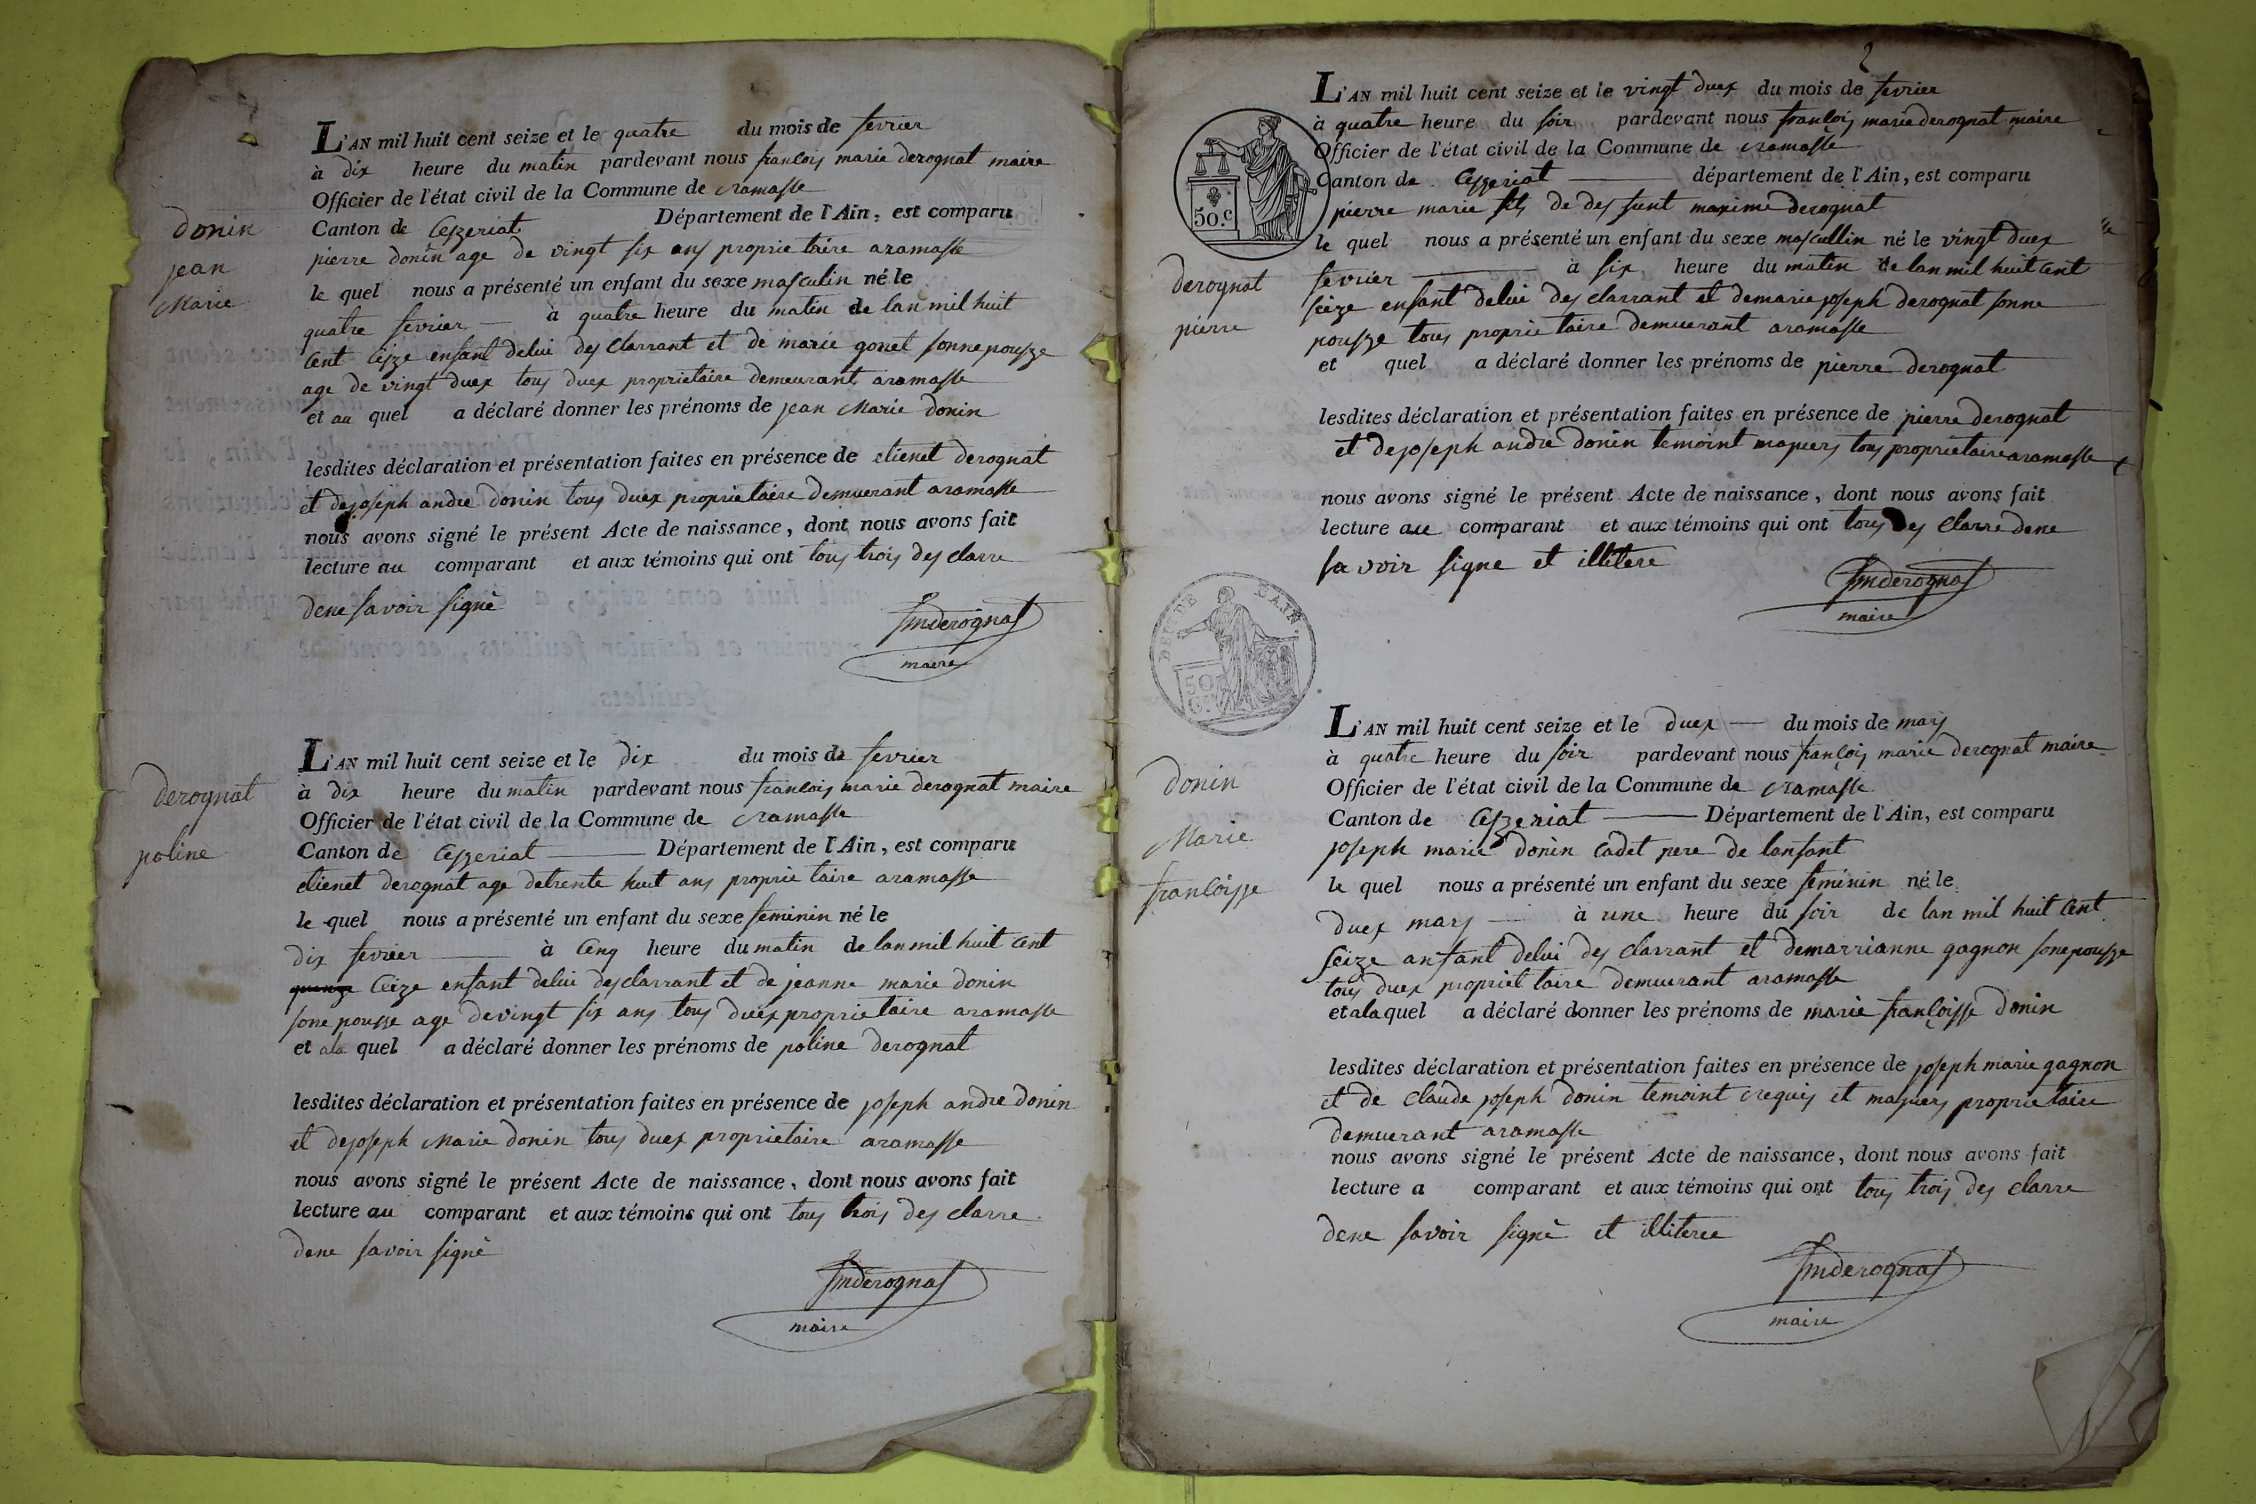 donin
jean
Marie
L'AN mil huit cent seize et le quatre du mois de fevrier
à dix heure du matin pardevant nous francois marie derognat maire
Officier de l'état civil de la Commune de ramasse
Canton de Ceyzeriat Département de l'Ain, est comparu
pierre donin age de vingt six ans proprietaire aramasse
le quel nous a présenté un enfant du sexe masculin né le
quatre fevrier à quatre heure du matin de lan mil huit
Cent Ceize enfant delui desClarrant et de marie gonet sonnepousze
age de vingt duex tous duex proprietaire demeurant aramasse
et au quel a déclaré donner les prénoms de jean Marie donin
lesdites déclaration et présentation faites en présence de etienet derognat
et dejoseph andre donin tous duex proprietaire demuerant aramasse
nous avons signé le présent Acte de naissance, dont nous avons fait
lecture au comparant et aux témoins qui ont tous trois des clarre
dene savoir signè
fmderognat
maire
derognat
poline
L'AN mil huit cent seize et le dix du mois de fevrier
à dix heure du matin pardevant nous francois marie derognat maire
Officier de l'état civil de la Commune de ramasse
Canton de Ceyzeriat Département de l'Ain, est comparu
etienet derognat age detrente huit ans proprietaire aramasse
le quel nous a présenté un enfant du sexe feminin né le
dix fevrier à Cenq heure du matin de lan mil huit Cent
quenze Ceize enfant delui desclarrant et de jeanne marie donin
sone pousse age devingt six ans tous duex proprietaire aramasse
et ala quel a déclaré donner les prénoms de poline derognat
lesdites déclaration et présentation faites en présence de joseph andre donin
et dejoseph Marie donin tous duex proprietaire aramasse
nous avons signé le présent Acte de naissance, dont nous avons fait
lecture au comparant et aux témoins qui ont tous trois des clarre
dene savoir signè
fmderognat
maire
2
50.c
derognat
pierre
L'AN mil huit cent seize et le vingt duex du mois de fevrier
à quatre heure du soir pardevant nous françois marie derognat maire
Officier de l'état civil de la Commune de ramasse
Canton de Ceyzeriat département de l'Ain, est comparu
pierre marie fils de des funt maxime derognat
le quel nous a présenté un enfant du sexe mascullin né le vingt duex
fevrier à six heure du matin de lan mil huit Cent
seize enfant delui des clarrant et demarie joseph derognat sonne
pousze tous proprietaire demuerant aramasse
et quel a déclaré donner les prénoms de pierre derognat
lesdites déclaration et présentation faites en présence de pierre derognat
et dejoseph andre donin temoint majuers tous proprietaire aramasse
nous avons signé le présent Acte de naissance, dont nous avons fait
lecture au comparant et aux témoins qui ont tous des Clarre dene
savoir signe et illitere
fmderognat
maire
DEPT DE L'AIN.
50
C.
donin
Marie
francoisse
L'AN mil huit cent seize et le duex du mois de mars
à quatre heure du soir pardevant nous françois marie derognat maire
Officier de l'état civil de la Commune de ramasse
Canton de Ceyzeriat Département de l'Ain, est comparu
joseph marie donin Cadet pere de lanfant
le quel nous a présenté un enfant du sexe feminin né le
duex mars à une heure du soir de lan mil huit Cent
seize anfant delui des clarrant et demarrianne gagnon sonepousze
tous duex propriettaire demuurant aramasse
et ala quel a déclaré donner les prénoms de marie françoisse donin
lesdites déclaration et présentation faites en présence de joseph marie gagnon
et de claude joseph donin temoint requis et majuers proprietaire
demuerant aramasse
nous avons signé le présent Acte de naissance, dont nous avons fait
lecture a comparant et aux témoins qui ont tous trois des clarre
dene savoir signè et illiteree
fmderognat
maire